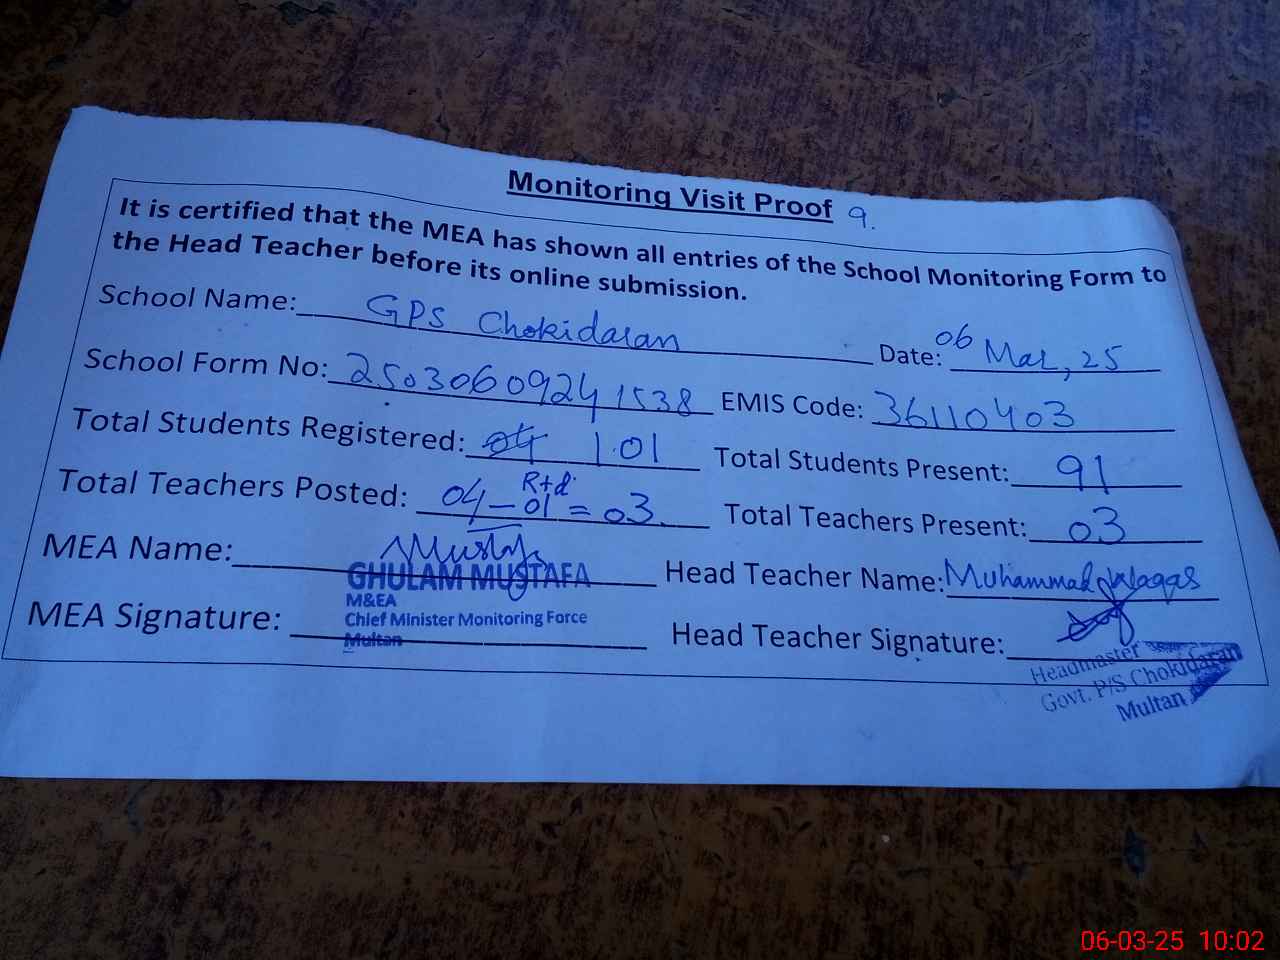 Monitoring Visit Proof 9.
It is certified that the MEA has shown all entries of the School Monitoring Form to
the Head Teacher before its online submission.
School Name: GPS Chokidaran Date: 06 Mar, 25
School Form No: 2503060924 1538 EMIS Code: 36110403
Total Students Registered: 101 Total Students Present: 91
Rtd.
Total Teachers Posted: 04 - 01 = 03. Total Teachers Present: 03
MEA Name: Mustafa Head Teacher Name: Muhammad Waqas
GHULAM MUSTAFA
M&EA
Chief Minister Monitoring Force
Multan
MEA Signature: Head Teacher Signature:
Headmaster
Govt. P/S Chokidaran
Multan
06-03-25 10:02